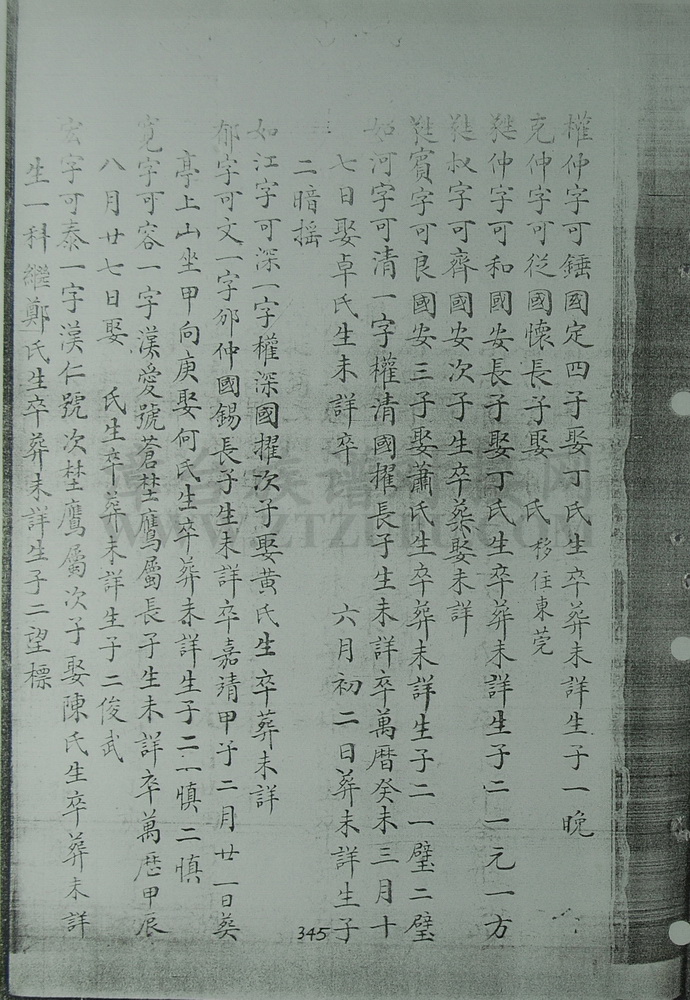 權仲字可錘國定四子娶丁氏生卒葬未詳生子一晚
克仲字可從國懷長子娶 氏 移住東莞
仲字可和國安長子娶丁氏生卒葬未詳生子二一元一方
叔字可齊國安次子生卒葬娶未詳
賓字可良國安三子娶蕭氏生卒葬未詳生子二一璧二璧
如河字可清一字權清國擢長子生未詳卒萬曆癸未三月十
七日娶卓氏生未詳卒 六月初二日葬未詳生子
二暗摇
如江字可深一字權深國擢次子娶黄氏生卒葬未詳
郁字可文一字邠仲國錫長子生未詳卒嘉靖甲子二月廿一日葵
亭上山坐甲向庚娶何氏生卒葬未詳生子二一慎二慎
寛字可容一字漢愛號蒼埜鷹屬長子生未詳卒萬歴甲辰
八月廿七日娶 氏生卒葬未詳生子二俊武
宏字可泰一字漢仁號次埜鷹屬次子娶陳氏生卒葬未詳
生一科繼鄭氏生卒葬未詳生子二望標
345
WWW.ZTZUPU.COM